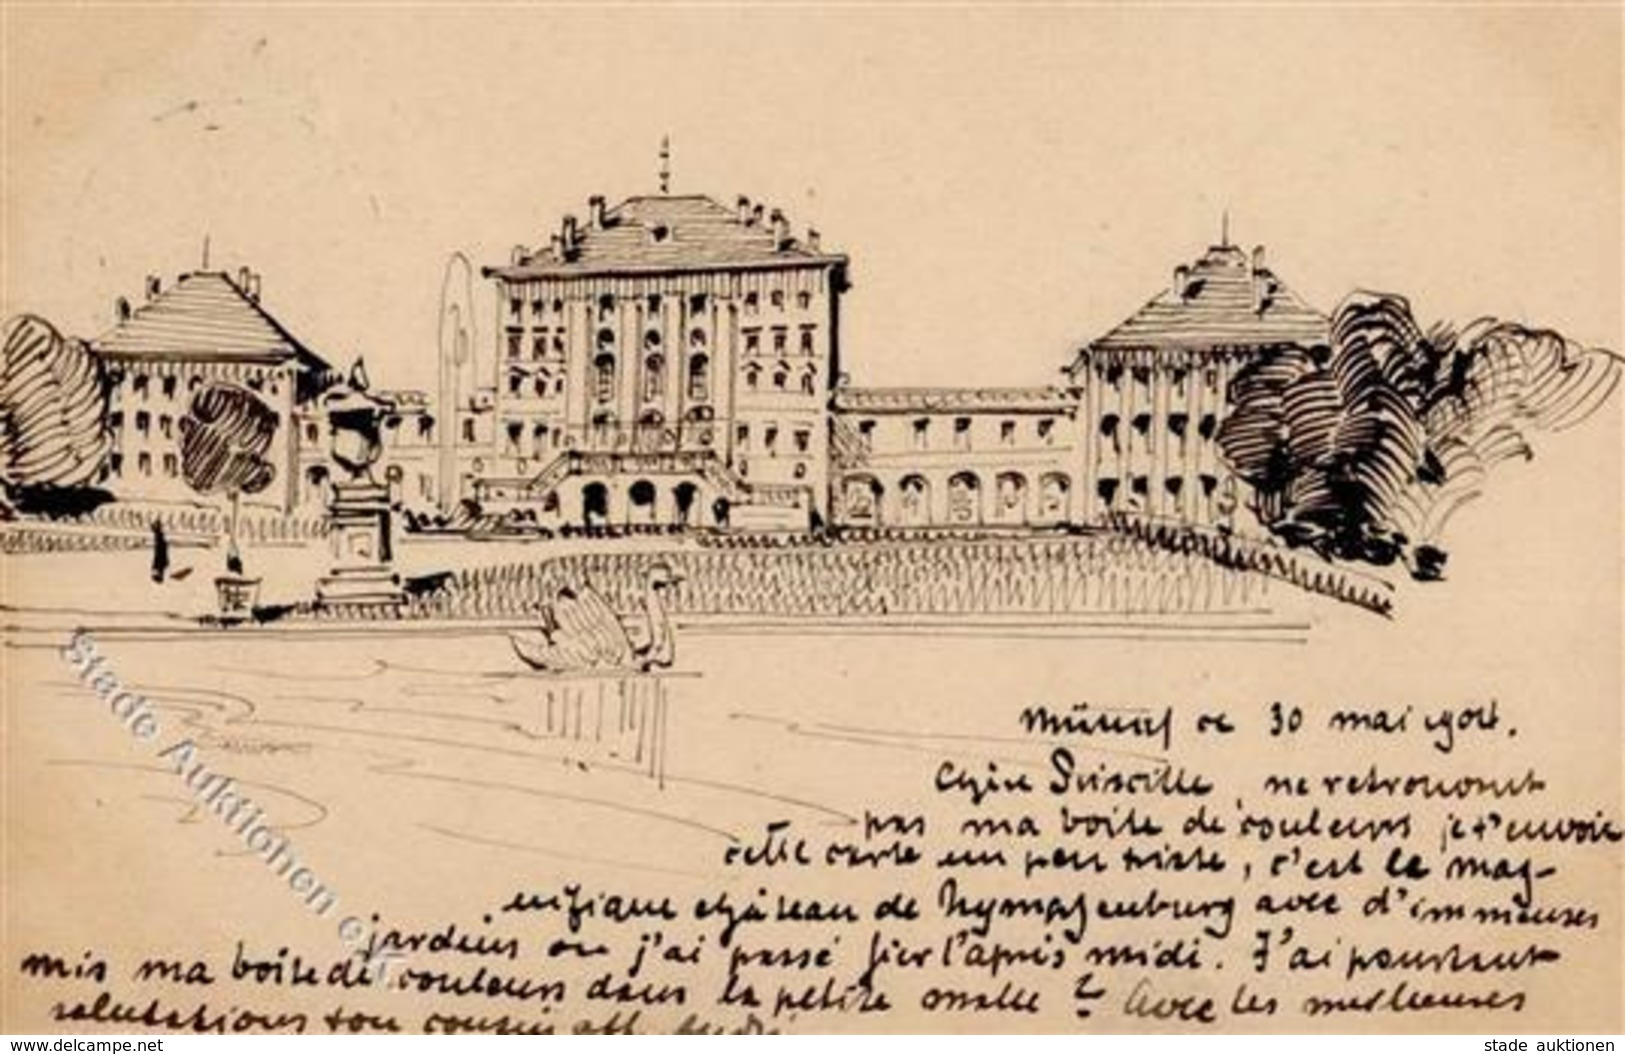 Münich ce 30 mai 1904.
Chère Priscille, ne retrouvant
pas ma boîte de couleurs je t'envoie
cette carte un peu triste, c'est le mag-
nifique château de Nymphenburg avec d'immenses
jardins où j'ai passé hier l'après midi. J'ai pourtant
mis ma boîte de couleurs dans la petite malle ? Avec les meilleures
salutations ton cousin aff.
Stade Auktionen
www.delcampe.net
stade auktionen